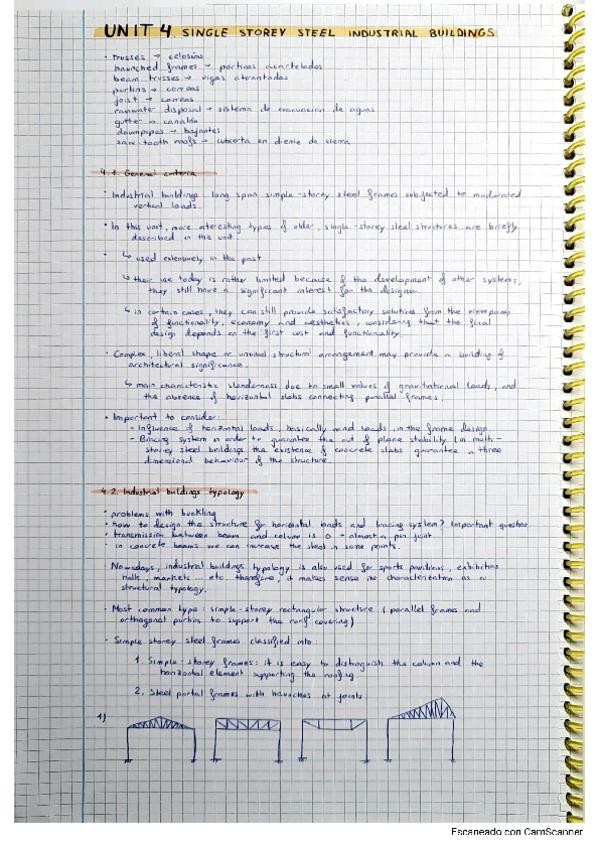 UNIT 4. SINGLE STOREY STEEL INDUSTRIAL BUILDINGS
· trusses → celosías
haunched frames → porticos acartelados
beam trusses → vigas atirantadas
purlins → correas
joist → correas
rainwater disposal → sistema de evacuación de aguas
gutter → canalón
downpipes → bajantes
saw tooth roofs → cubierta en diente de sierra
4.1. General criteria
· Industrial buildings long span simple-storey steel frames subjected to moderated
vertical loads.
· In this unit, more interesting types of older, single-storey steel structures are briefly
described in this unit.
↳ used extensively in the past
↳ their use today is rather limited because of the development of other systems,
they still have a significant interest for the designer
↳ in certain cases, they can still provide satisfactory solutions from the viewpoints
of functionality, economy and aesthetics, considering that the final
design depends on the first cost and functionality.
· Complex, liberal shape or unusual structural arrangement may provide a building of
architectural significance.
↳ main characteristic slenderness due to small values of gravitational loads, and
the absence of horizontal slabs connecting parallel frames.
· Important to consider:
- Influence of horizontal loads, basically wind loads, in the frame design
- Bracing system in order to guarantee the out of plane stability (in multi-
storey steel buildings the existence of concrete slabs guarantee a three
dimensional behaviour of the structure
4.2. Industrial buildings typology
· problems with buckling
· how to design the structure for horizontal loads and bracing system? Important question
· transmission between beam and column is 0 → almost a pin joint
· in concrete beams we can increase the steel in some points.
· Nowadays, industrial buildings typology is also used for sports pavilions, exhibition
halls, markets... etc. therefore, it makes sense no characterization as a
structural typology.
· Most common type: simple-storey rectangular structure (parallel frames and
orthogonal purlins to support the roof covering)
· Simple storey steel frames classified into:
1. Simple-storey frames: it is easy to distinguish the column and the
horizontal element supporting the roofing.
2. Steel portal frames with haunches at joints.
1)
Escaneado con CamScanner